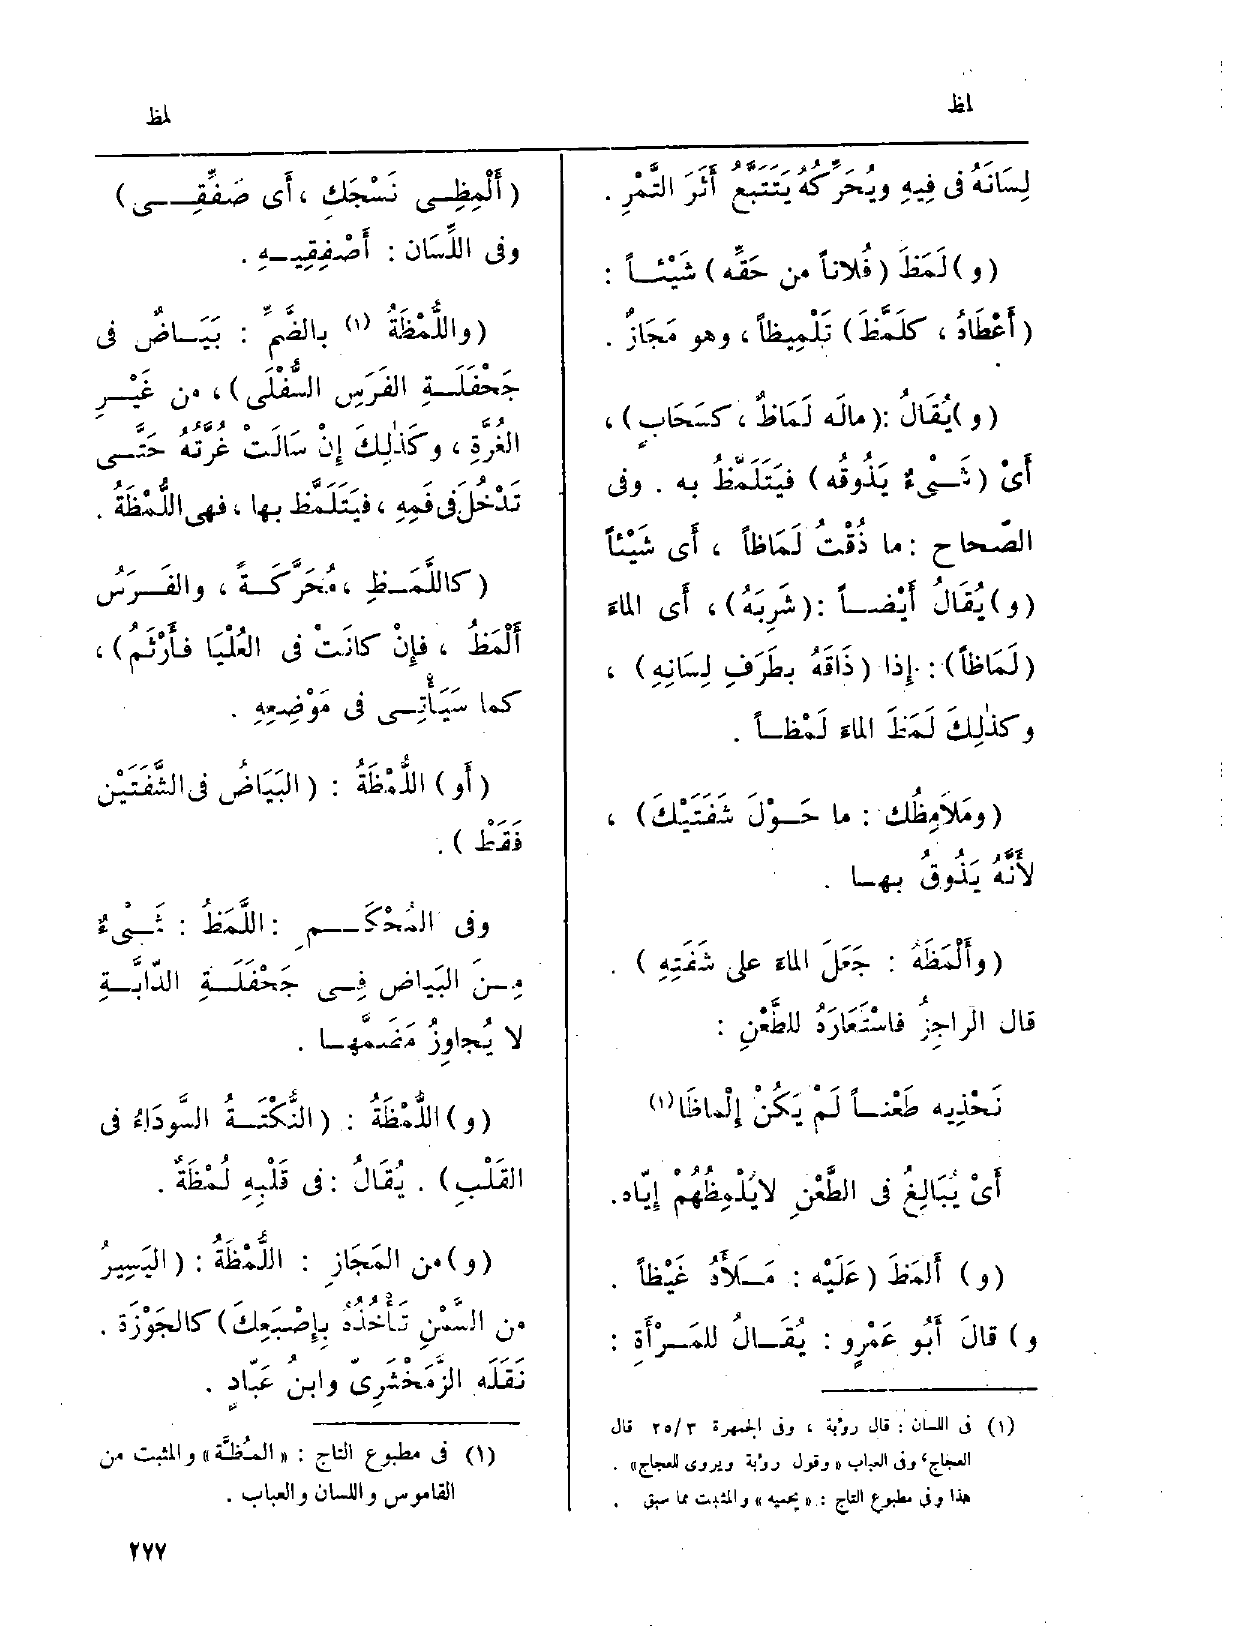 لمظ
لمظ
لِسَانَهُ فى فِيهِ ويُحَرِّكُهُ يَتَتَبَّعُ أَثَرَ التَّمْرِ .
(و) لَمَظَ (فُلاناً من حَقِّه) شَيْئــاً :
(أَعْطَاهُ ، كلَمَّظَ) تَلْمِيظاً ، وهو مَجَازٌ .
(و) يُقَالُ : (مالَه لَمَاظٌ ، كسَحَابٍ) ،
أَىْ (شَــىْءٌ يَذُوقُه) فيَتَلَمَّظُ به . وفى
الصّحاح : ما ذُقْتُ لَمَاظاً ، أَى شَيْئاً
(و) يُقَالُ أَيْضــاً : (شَرِبَهُ) ، أَى الماءَ
(لَمَاظاً) : إِذا (ذَاقَهُ بطَرَفِ لِسَانِهِ) ،
وكذٰلِكَ لَمَظَ الماءَ لَمْظــاً .
(ومَلاَمِظُك : ما حَــوْلَ شَفَتَيْكَ) ،
لأَنَّهُ يَذُوقُ بهــا .
(وأَلْمَظَهُ : جَعَلَ الماءَ على شَفَتِهِ) .
قال الراجِزُ فاسْتَعَارَهُ للطَّعْنِ :
نَحْذِيه طَعْنــاً لَمْ يَكُنْ إِلْماظَا (١)
أَىْ يُبَالِغُ فى الطَّعْنِ لايُلْمِظُهُمْ إِيّاه .
(و) أَلمَظَ (عَلَيْه : مَــلأَهُ غَيْظاً .
و) قالَ أَبُو عَمْرٍو : يُقَــالُ للمَــرْأَةِ :
(١) فى اللسان : قال رؤبة ، وفى الجمهرة ٣/٢٥ قال
العجاج ، وفى العباب « وقول رؤبة ويروى للعجاج » .
هذا وفى مطبوع التاج : « يحميه » والمثبت مما سبق .
(أَلْمِظِــى نَسْجَكِ ، أَى صَفِّقِــــى)
وفى اللِّسَان : أَصْفِقِيــهِ .
(واللُّمْظَةُ (١) بالضَّمِّ : بَيَــاضٌ فى
جَحْفَلَــةِ الفَرَسِ السُّفْلَى) ، من غَيْــرِ
الغُرَّةِ ، وكَذٰلِكَ إِنْ سَالَتْ غُرَّتُهُ حَتَّــى
تَدْخُلَ فى فَمِهِ ، فيَتَلَمَّظ بها ، فهى اللُّمْظَةُ .
(كاللَّمَــظِ ، مُحَرَّكَــةً ، والفَــرَسُ
أَلْمَظُ ، فإِنْ كانَتْ فى العُلْيَا فأَرْثَمُ) ،
كما سَيَأْتِــى فى مَوْضِعِهِ .
(أَو) اللُّمْظَةُ : (البَيَاضُ فى الشَّفَتَيْن
فَقَطْ) .
وفى المُحْكَــــمِ : اللَّمَظُ : شَــىْءٌ
مِــنَ البَيَاض فِــى جَحْفَلَــةِ الدّابَّــةِ
لا يُجاوِزُ مَضَمَّهــا .
(و) اللُّمْظَةُ : (النُّكْتَــةُ السَّوداءُ فى
القَلْبِ) . يُقَالُ : فى قَلْبِهِ لُمْظَةٌ .
(و) من المَجَازِ : اللُّمْظَةُ : (اليَسِيرُ
من السَّمْنِ تَأْخُذُهُ بإِصْبَعِكَ) كالجَوْزَة .
نَقَلَه الزَّمَخْشَرِىّ وابنُ عَبّادٍ .
(١) فى مطبوع التاج : « المُظَّة » والمثبت من
القاموس واللسان والعباب .
٢٧٧